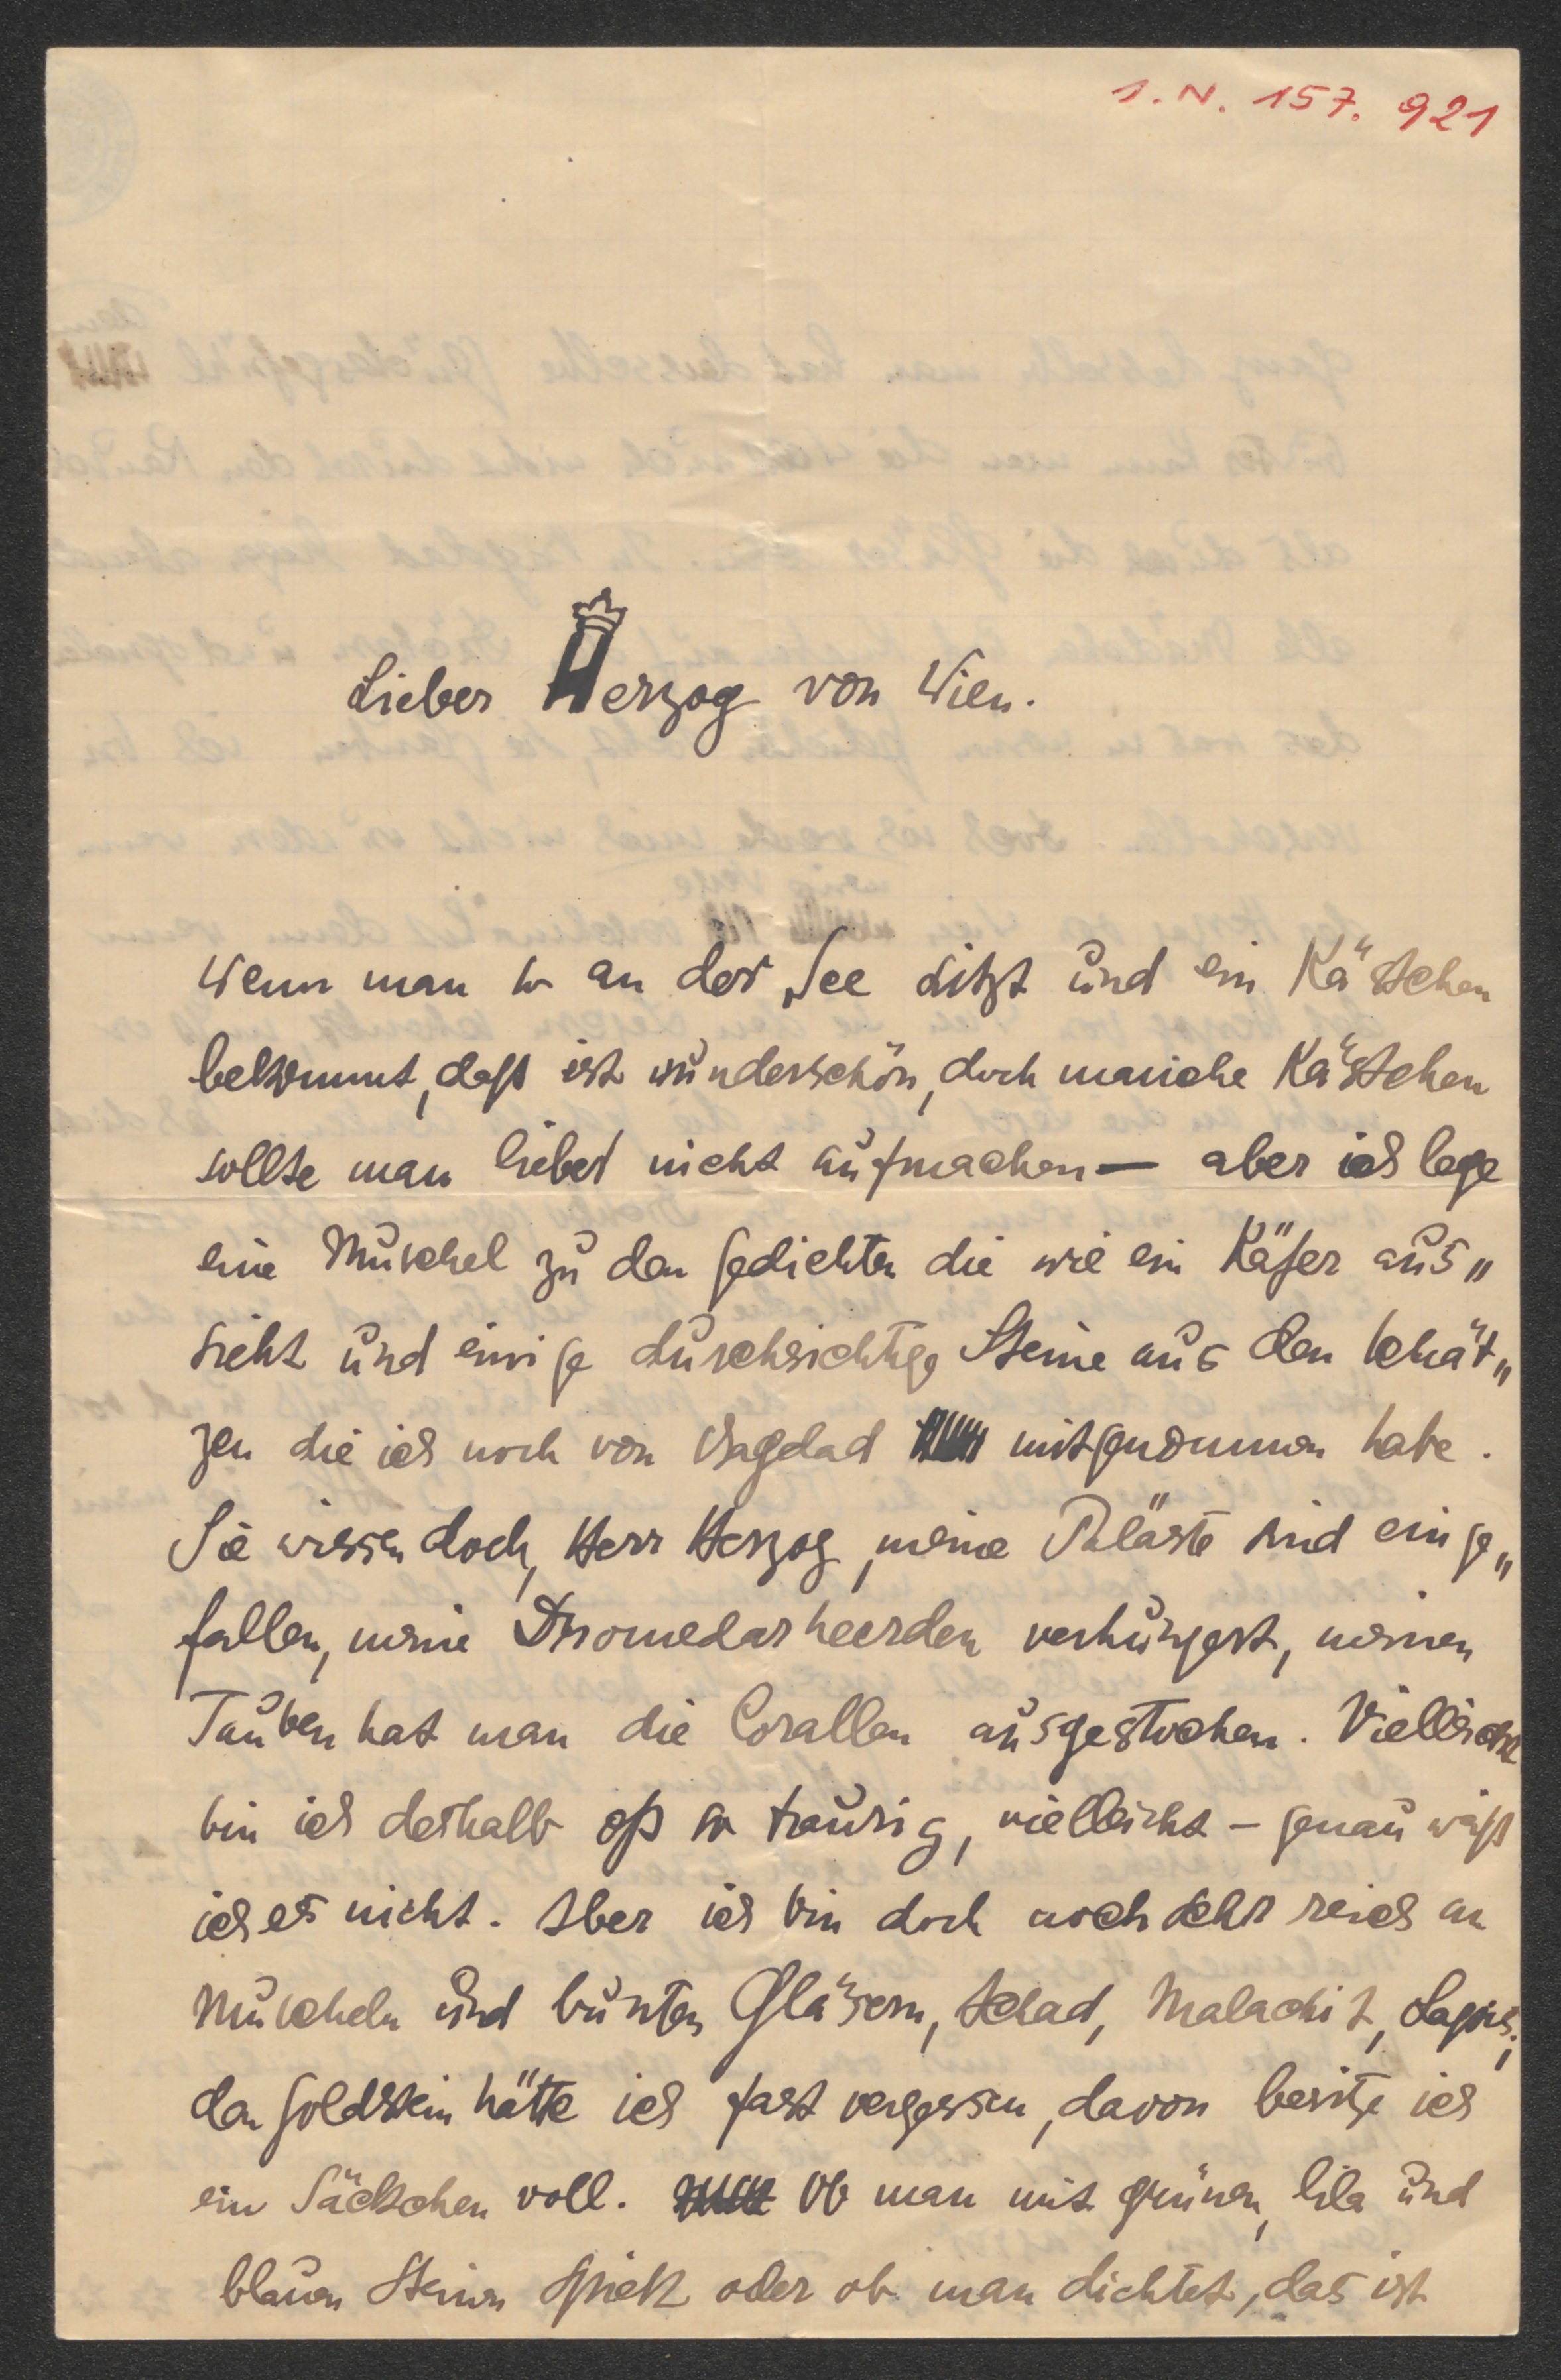 I.N. 157.921
Lieber Herzog von Wien.
Wenn man so an der See sitzt und ein Kästchen
bekommt, daß ist wunderschön, doch manche Kästchen
sollte man lieber nicht aufmachen — aber ich lege
eine Muschel zu den Gedichten die wie ein Käfer aus„
sieht und einige durchsichtige Steine aus den Schät„
zen die ich noch von Bagdad mitgenommen habe.
Sie wissen doch, Herr Herzog, meine Paläste sind einge„
fallen, meine Dromedarheerden verhungert, meinen
Tauben hat man die Corallen ausgestochen. Vielleicht
bin ich deshalb oft so traurig, vielleicht – genau weiß
ich es nicht. Aber ich bin doch noch sehr reich an
Muscheln und bunten Gläsern, Achad, Malachit, Lapis;
den Goldstein hätte ich fast vergessen, davon besitze ich
ein Säckchen voll. Ob man mit grünen, lila und
blauen Steinen spielt oder ob man dichtet, das ist